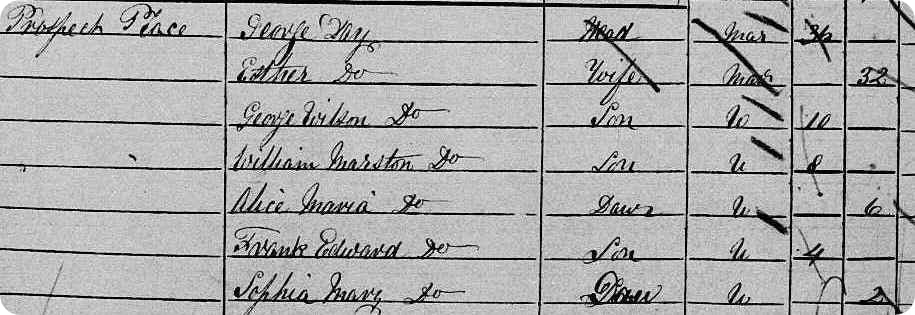 Prospect Place George Day Head Mar 36
Esther Do Wife Mar 32
George Wilson Do Son U 10
William Marston Do Son U 8
Alice Maria Do Dawr U 6
Frank Edward Do Son U 4
Sophia Mary Do Dawr U 2